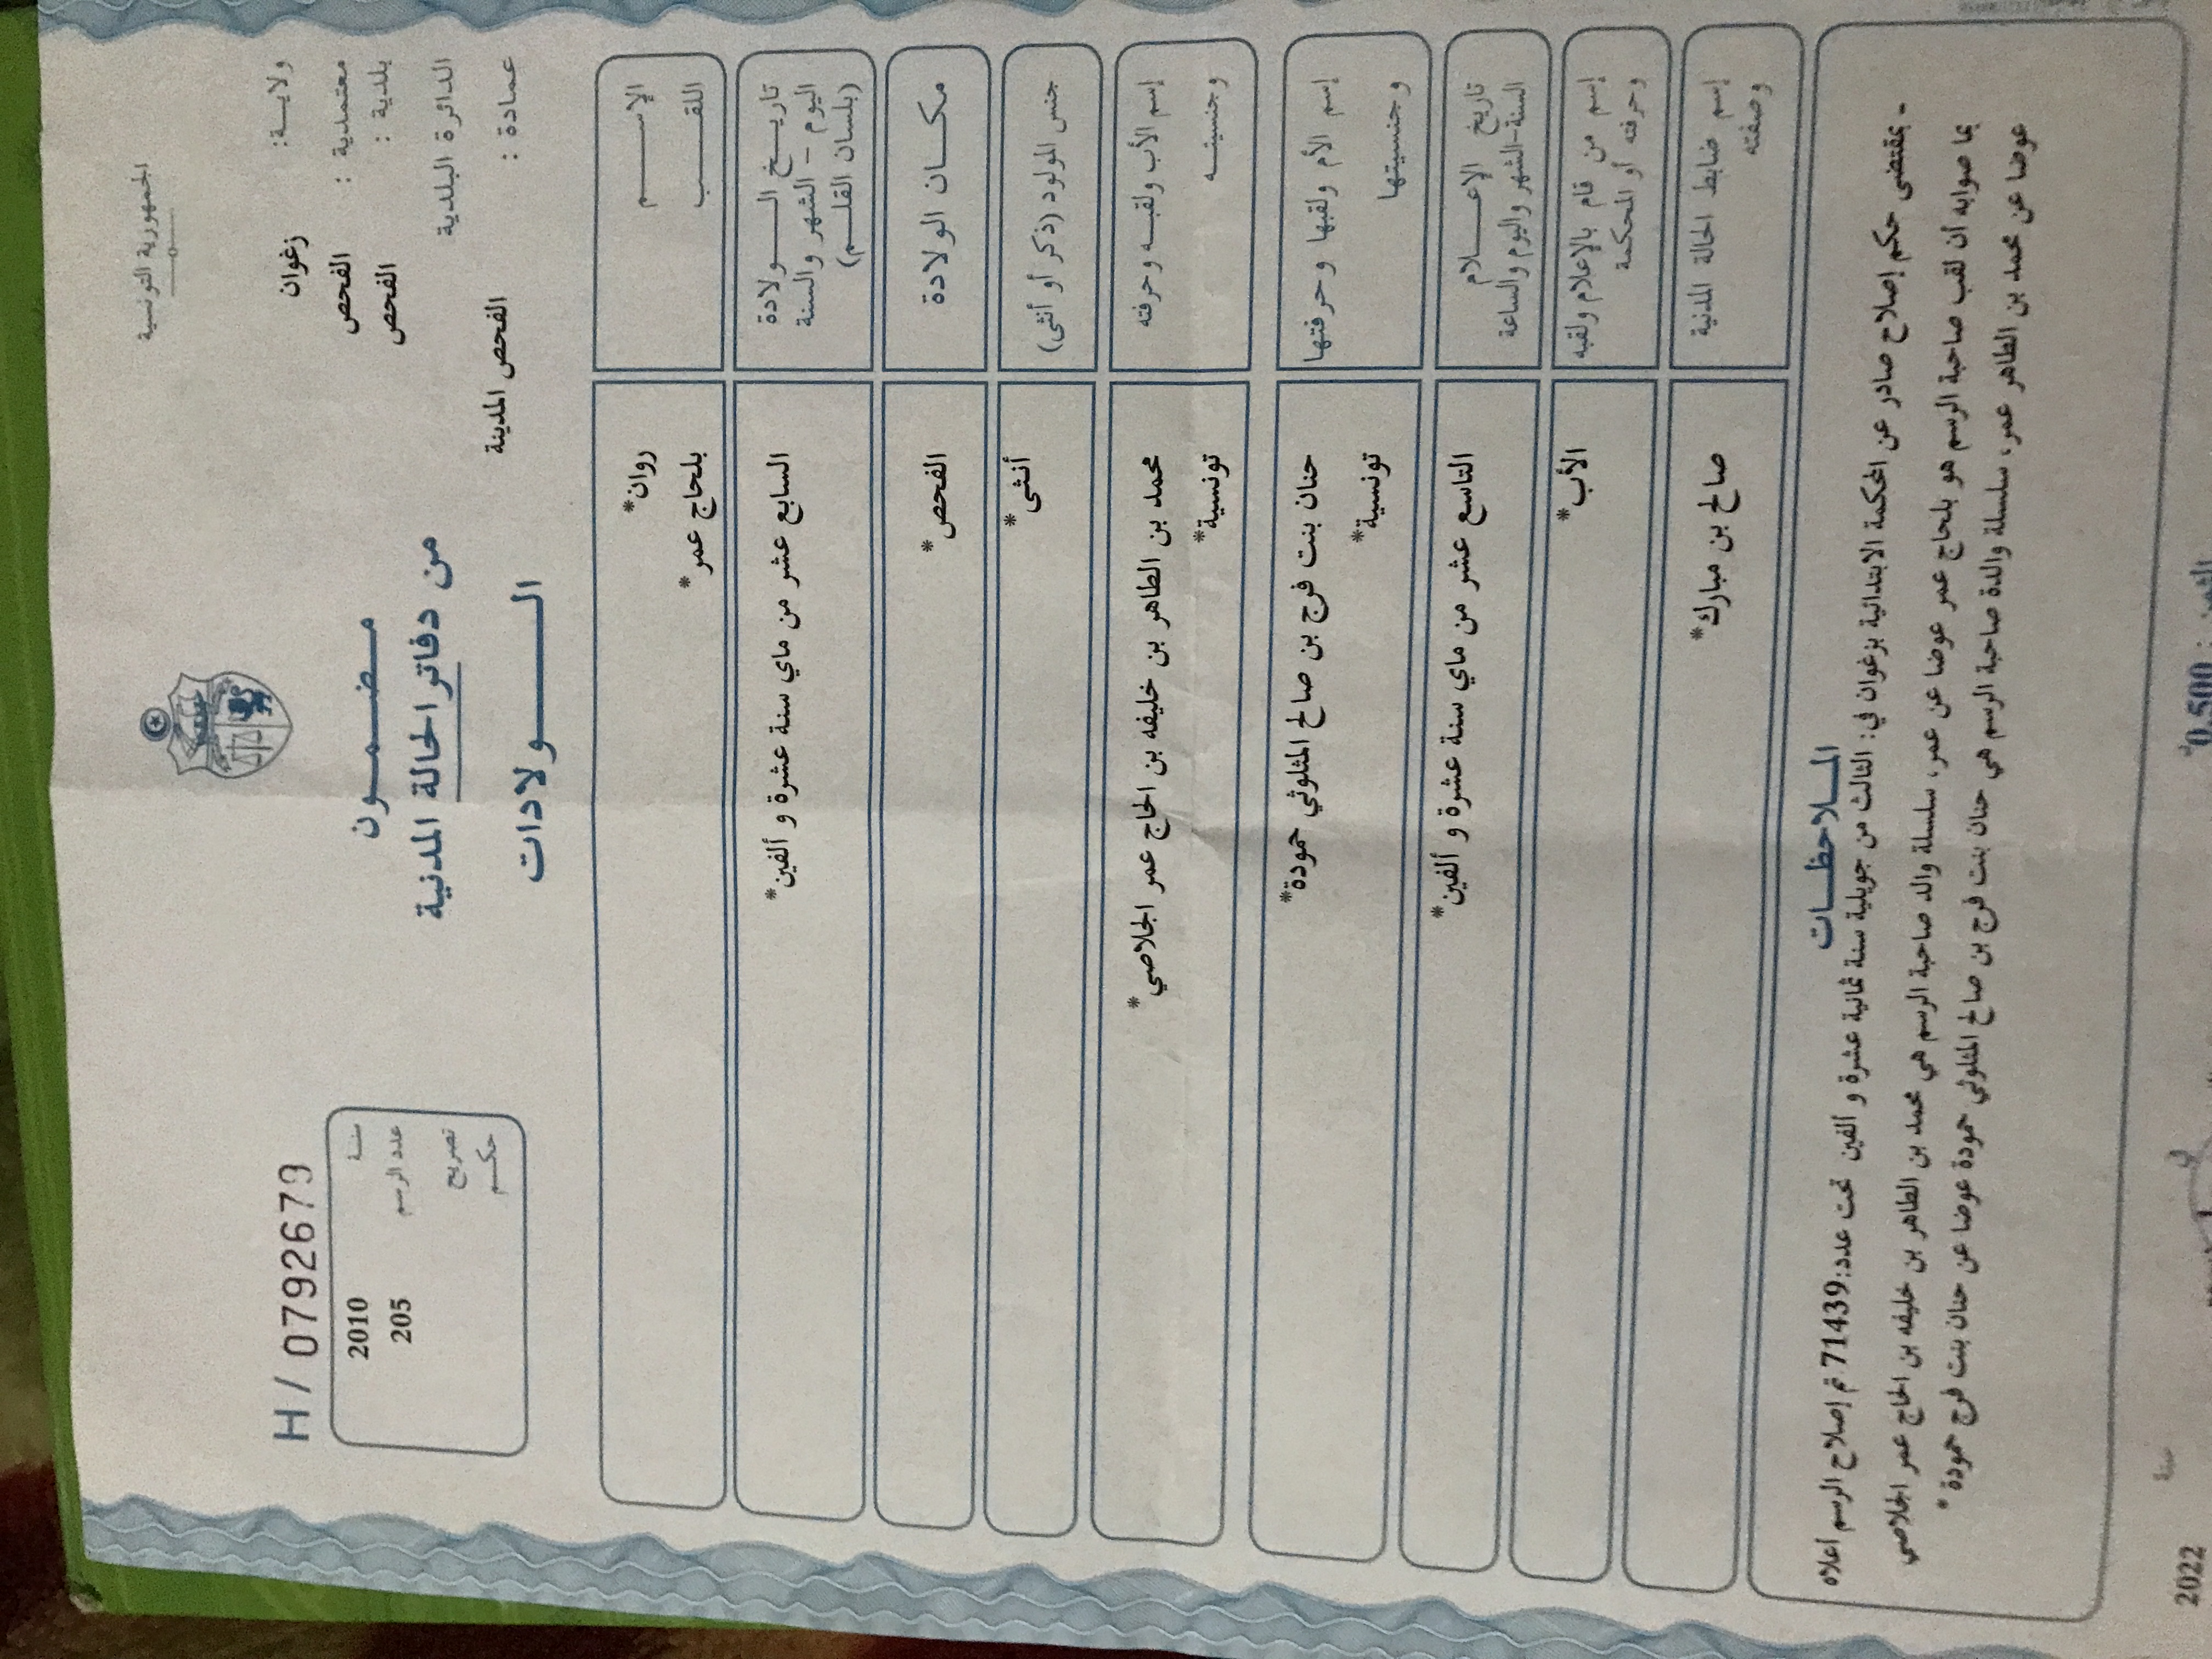 الجمهورية التونسية
ولايـة: زغوان
معتمدية : الفحص
بلدية : الفحص
الدائرة البلدية
عمادة : الفحص المدينة
مـضـمـون
من دفاتر الحالة المدنية
الـــولادات
H/ 0792679
سنة 2010
عدد الرسم 205
تصريح
حكـم
الإســـم روان*
اللقـــب بلحاج عمر*
تاريـخ الـــولادة
اليوم – الشهر والسنة
(بلسان القلـم)
السابع عشر من ماي سنة عشرة و ألفين*
مكـــان الولادة الفحص*
جنس المولود (ذكر أو أنثى) أنثى*
إسم الأب ولقبـه وحرفته محمد بن الطاهر بن خليفه بن الحاج عمر الجلاصي*
وجنسيتــه تونسية*
إسم الأم ولقبها وحرفتها حنان بنت فرج بن صالح المثلوثي حمودة*
وجنسيتها تونسية*
تاريخ الإعـــلام
السنة-الشهر واليوم والساعة
التاسع عشر من ماي سنة عشرة و ألفين*
إسم من قام بالإعلام ولقبه
وحرفته أو المحكمة
الأب*
إسم ضابط الحالة المدنية
وصفته
صالح بن مبارك*
المــلاحظــات
- بمقتضى حكم إصلاح صادر عن المحكمة الابتدائية بزغوان في: الثالث من جويلية سنة ثمانية عشرة و ألفين تحت عدد:71439 تم إصلاح الرسم أعلاه
بما صوابه أن لقب صاحبة الرسم هو بلحاج عمر عوضا عن عمر، سلسلة والد صاحبة الرسم هي محمد بن الطاهر بن خليفه بن الحاج عمر الجلاصي
عوضا عن محمد بن الطاهر عمر، سلسلة والدة صاحبة الرسم هي حنان بنت فرج بن صالح المثلوثي حمودة عوضا عن حنان بنت فرج حمودة*
الثمن : 0,500
في
سنة 2022